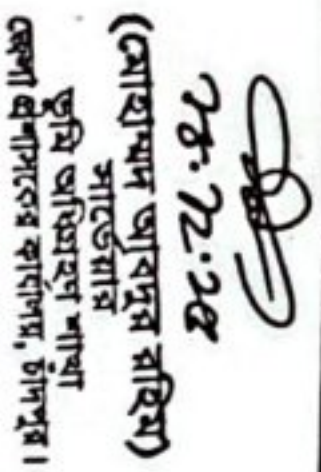 (মোহাম্মদ আবদুর রহিম)
সার্ভেয়ার
ভূমি অধিগ্রহণ শাখা
জেলা প্রশাসকের কার্যালয়, চাঁদপুর।